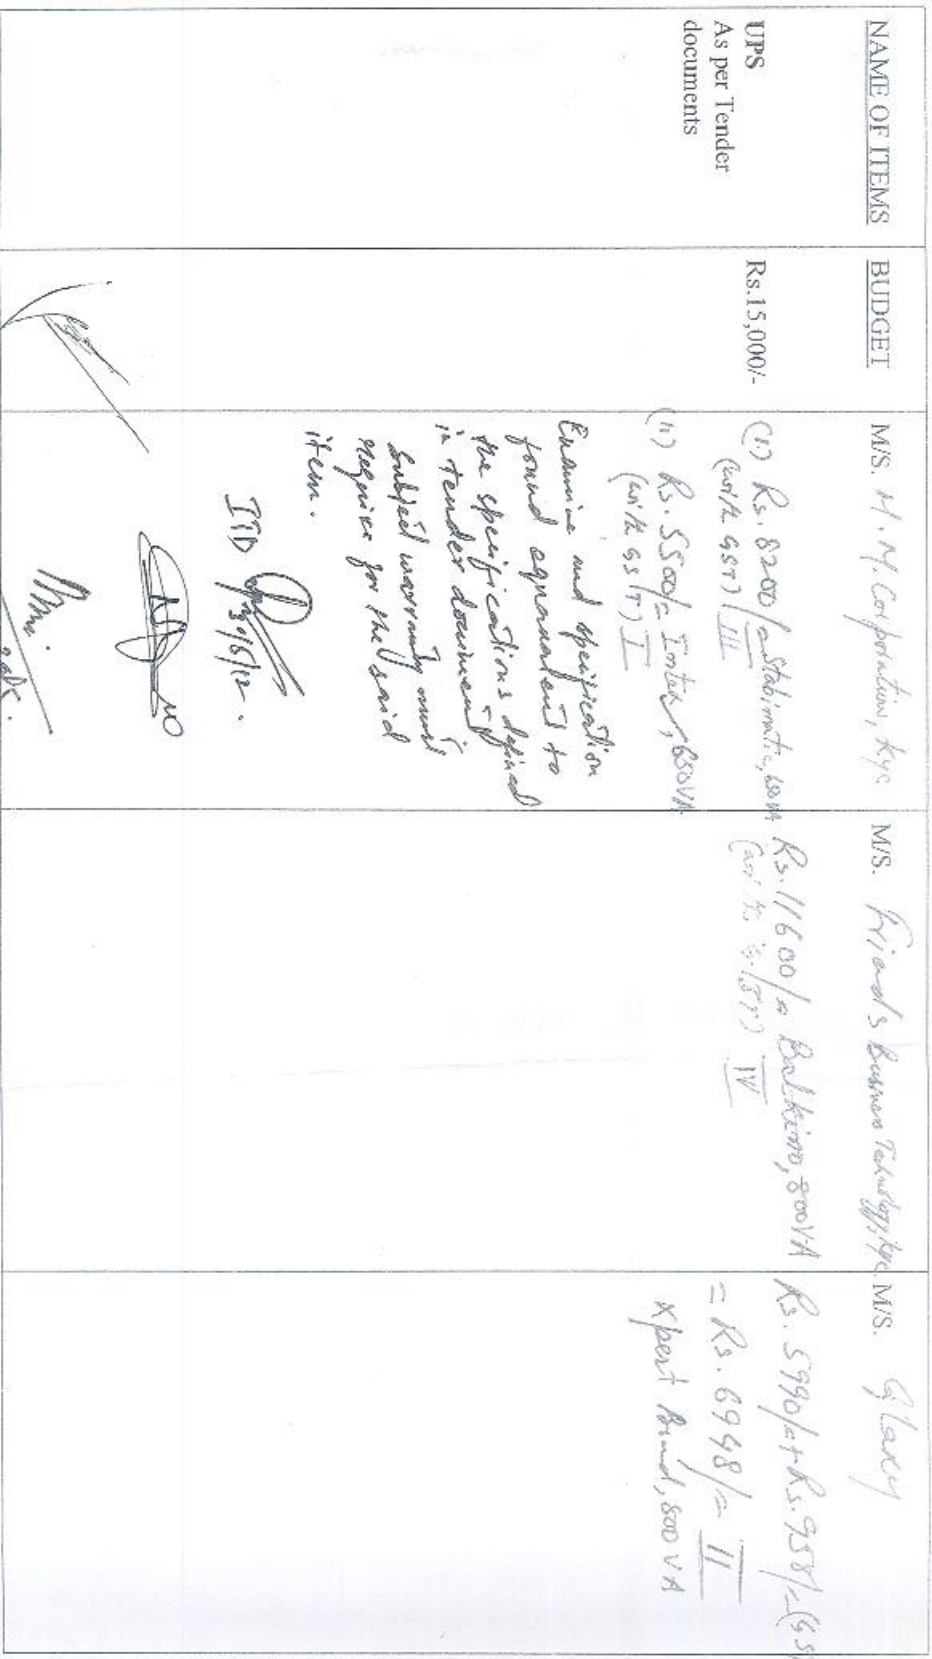 NAME OF ITEMS
BUDGET
M/S. H.M. Corporation, Kyc
M/S. Friends Business Technology, Kyc.
M/S. Glaxy
UPS
As per Tender
documents
Rs.15,000/-
(i) Rs. 8200/= Stabimatic, 650VA
(with GST) III
(ii) Rs. 5500/= Intek, 650VA
(with GST) I
Examine and specification
found equivalent to
the specifications defined
in tender document
subject warranty must
require for the said
item.
ITD
Rs. 11600/= Balkimo, 800VA
(with GST) IV
Rs. 5990/=+Rs. 958/=(GS
= Rs. 6948/= II
Xpert Brand, 800VA